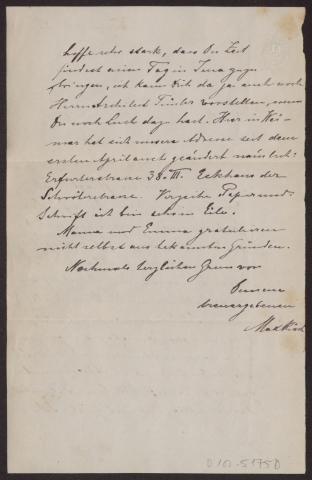 hoffe sehr stark, dass Du Zeit
findest einen Tag in Jena zuzu-
bringen, ich kann Dich da ja auch noch
Herrn Architect Timler vorstellen, wenn
Du noch Lust dazu hast. Hier in Wei-
mar hat sich unsere Adresse seit dem
ersten April auch geändert nämlich:
Erfurterstrasse 38 III. Eckhaus der
Schrötersstrasse. Verzeihe Papier und
Schrift ich bin schon Eile.
Mama und Emma gratulieren
nicht selbst aus bekannten Gründen.
Nochmals herzlichen Gruss von
Deinem
treuergebenen
Max
D 101-5175 D